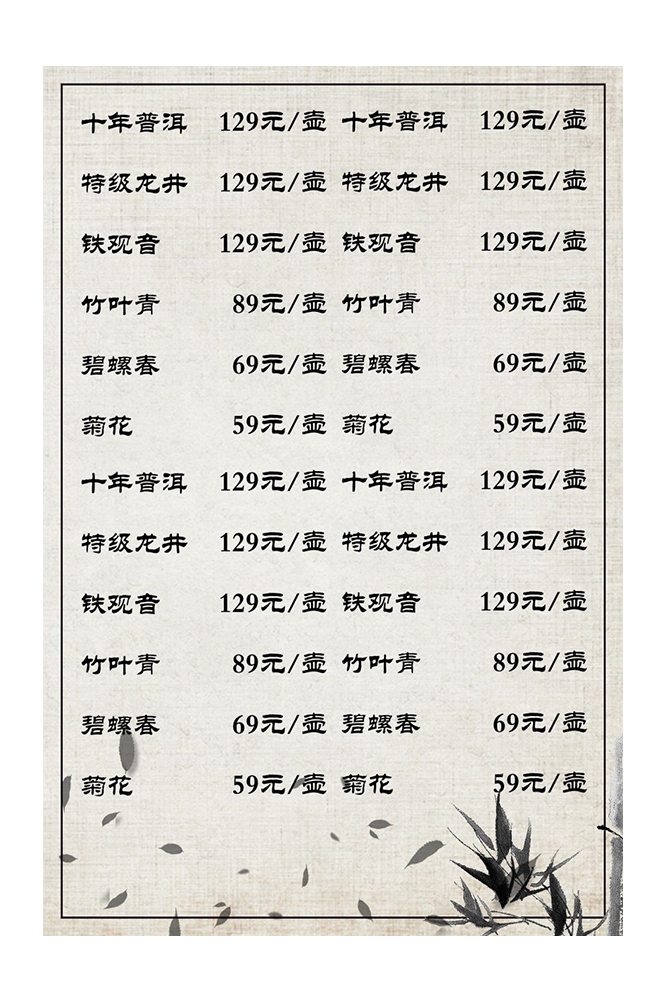 十年普洱 129元/壶 十年普洱 129元/壶
特级龙井 129元/壶 特级龙井 129元/壶
铁观音 129元/壶 铁观音 129元/壶
竹叶青 89元/壶 竹叶青 89元/壶
碧螺春 69元/壶 碧螺春 69元/壶
菊花 59元/壶 菊花 59元/壶
十年普洱 129元/壶 十年普洱 129元/壶
特级龙井 129元/壶 特级龙井 129元/壶
铁观音 129元/壶 铁观音 129元/壶
竹叶青 89元/壶 竹叶青 89元/壶
碧螺春 69元/壶 碧螺春 69元/壶
菊花 59元/壶 菊花 59元/壶